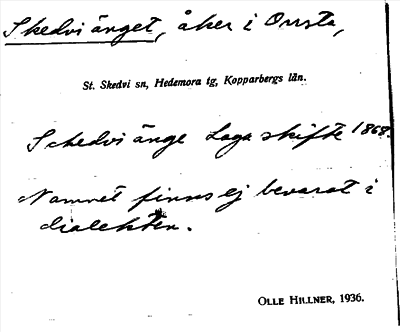 Skedvi änget, åker i Onsta,
St. Skedvi sn, Hedemora tg, Kopparbergs län.
Schedvi änge Laga skifte 1868.
Namnet finns ej bevarat i
dialekten.
OLLE HILLNER, 1936.